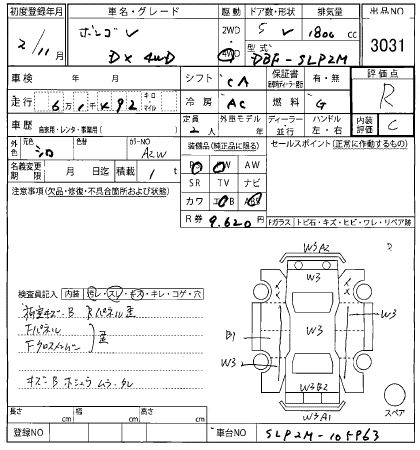 初度登録年月
車名・グレード
駆動
ドア数・形状
排気量
出品NO
2/11月
ボンゴ V
DX 4WD
2WD
4WD
5 V
1800 cc
型式
DBF-SLP2M
3031
車検 年 月
シフト CA
保証書
有・無
評価点
R
走行 6万1千492 キロ マイル
冷房 AC
燃料 G
車歴 自家用・レンタ・事業用( )
定員 2人
外車モデル 年
ディーラー 並行
ハンドル 左・右
内装評価 C
外色 元色 シロ
色替
カラーNO A2W
名義変更期限 月 日迄
積載 1 t
装備品(純正品に限る)
PS PW AW
SR TV ナビ
カワ エアB ABS
R券 9,620円
セールスポイント(正常に作動するもの)
注意事項(欠品・修復・不具合箇所および状態)
Fガラス トビ石・キズ・ヒビ・ワレ・リペア跡
W3A2
W3
W3
W3
B1
W3
W3B2
W3A1
スペア
検査員記入 内装 ヨレ・スレ・キズ・キレ・コゲ・穴
荷室キズ・B Rパネル歪
Fパネル
Fクロスメンバー 歪
キズ・B ホシュウ ムラ・タレ
長さ cm
幅 cm
高さ cm
登録NO
車台NO SLP2M-105963